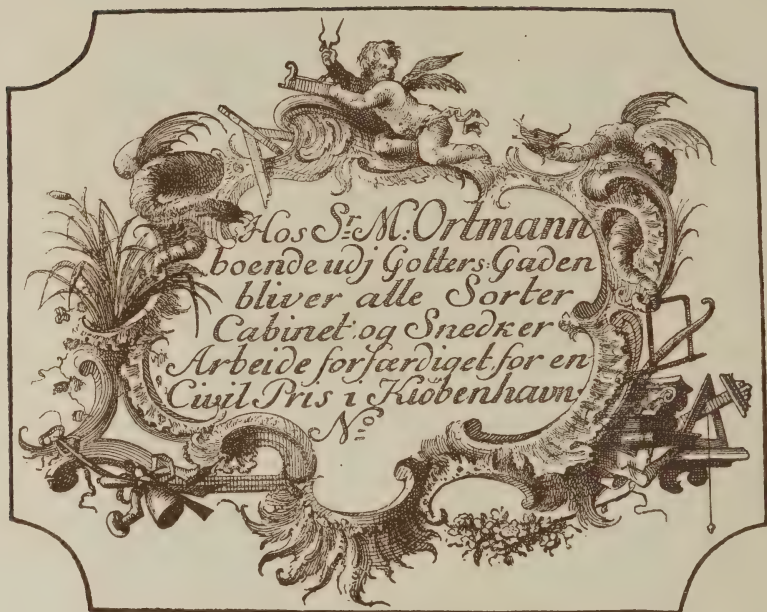 Hos Sr. M. Ortmann
boende udj Gotters-Gaden
bliver alle Sorter
Cabinet og Snedker
Arbeide forfærdiget for en
Civil Pris i Kiöbenhavn
No